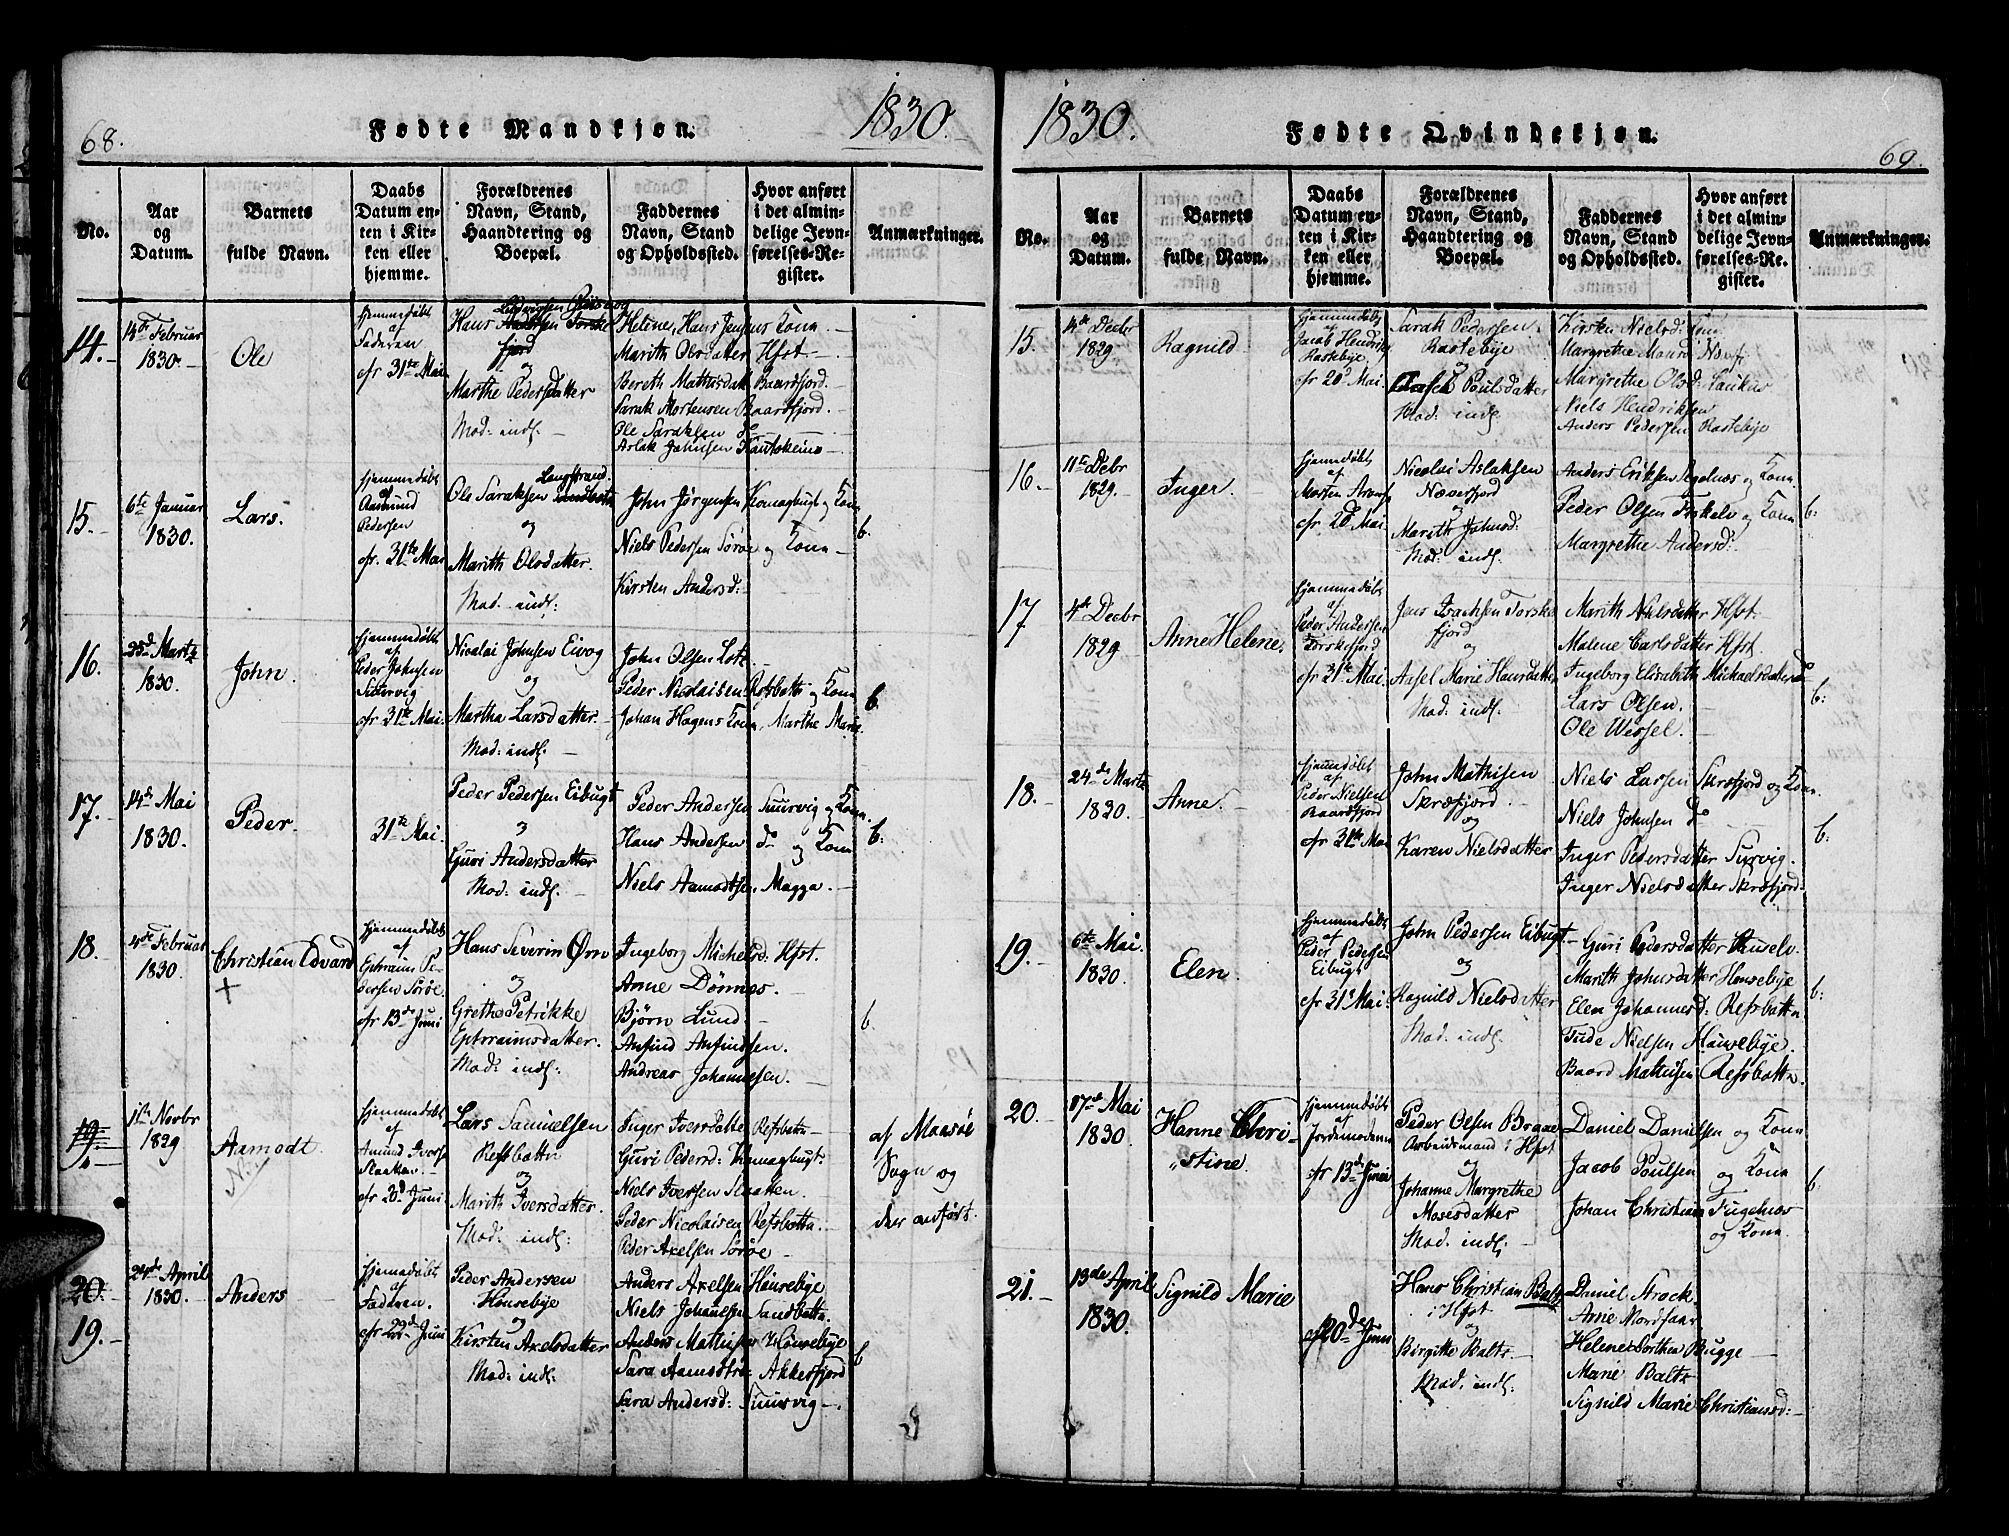 68.
Fødte Mandkjøn.
1830.
No.
Aar
og
Datum.
Barnets
fulde Navn.
Daabs
Datum en-
ten i Kir-
ken eller
hjemme.
Forældrenes
Navn, Stand,
Haandtering og
Boepæl.
Faddernes
Navn, Stand
og Opholdssted.
Hvor anført
i det almin-
delige Jevn-
førelses-Re-
gister.
Anmærkninger.
14.
Februar
1830.
Ole
hjemmedøbt
af
Faderen
cfr 31te Mai
Hans
og
Marthe Pedersdatter
Mod: indf.
Helene, Hans Jensens Kone
Marith Olsdatter Hfst
Bereth Mathisdatt Baardfjord.
Sarak Mortensen Baardfjord.
Ole Saraksen do
Aslak Johnsen Kautokeino
15.
6te Januar
1830.
Lars.
hjemmedøbt
af
Aamund
Pedersen
cfr. 31te Mai
Langstrand
Ole Saraksen
og
Marith Olsdatter.
Mod. indf:
John Jørgensen Komagbugt og Kone
Niels Pedersen Sørøe og Kone
Kirsten Andersd:
b.
16.
25de Marts
1830.
John.
hjemmedøbt
af
Peder Johnsen
Suurvig
cfr 31te Mai.
Nicolai Johnsen Eivog
og
Martha Larsdatter.
Mod: indf.
John Olsen Lotz
Peder Nicolaisen Refsbotn og Kone
Johan Hagens Kone, Marthe Marie
b.
17.
14de Mai
1830.
Peder.
31te Mai
Peder Pedersen Eibugt
og
Guri Andersdatter
Mod: indf.
Peder Andersen Suurvig og Kone.
Hans Andersen do og Kone
Niels Aamodtsen Magga.
b:
18.
4de Februar
1830.
Christian Edvard
+
hjemmedøbt
af
Ephraim Pe-
dersen Sørøe.
cfr 13de Juni
Hans Severin Ørn
og
Grethe Petrikke
Ephraimsdatter.
Mod: indf:
Ingeborg Michelsd: Hfst.
Arne Dønnes.
Bjørn Lund.
Anfind Anfindsen.
Andreas Johannesen.
b.
19.
Novbr
1829
Aamodt.
hjemmedøbt
af
Amund Ivers
Slaatten.
cfr 20d Juni
Lars Samuelsen
Refsbotn
og
Marith Iversdatter.
Mod: indf:
Inger Iversdatter Refsbotn
Guri Pedersd: Komagbugt.
Niels Iversen Slaatten.
Peder Nicolaisen Refsbotn.
Peder Axelsen Sørøe
af Maasøe
Sogn og
der anført.
20.
19.
24de April
1830.
Anders
hjemmedøbt
af
Faderen.
cfr 22de Juni
Peder Andersen
Hønsebye
og
Kirsten Axelsdatter
Mod: indf:
Anders Axelsen Hønsebye
Niels Johansen Sandbotn.
Anders Mathisen Hønsebye
Sara Aamodtsd: Akkerfjord
Sara Andersd: Suurvig
b
1830.
Fødte Qvindekjøn.
69.
No.
Aar
og
Datum.
Barnets
fulde Navn.
Daabs
Datum en-
ten i Kir-
ken eller
hjemme.
Forældrenes
Navn, Stand,
Haandtering og
Boepæl.
Faddernes
Navn, Stand
og Opholdssted.
Hvor anført
i det almin-
delige Jevn-
førelses-Re-
gister.
Anmærkninger.
15.
Decbr
1829
Ragnild
hjemmedøbt
af
Jacob Hendriks
Rastebye
cfr 20d Mai.
Sarak Pedersen
Rastebye
og
Poulsdatter
Mod. indf.
Kirsten Nielsd:
Margrethe
Margrethe Olsd:
Niels Hendriksen
Anders Pedersen Rastebye
16.
11te Debr
1829.
Inger.
hjemmedøbt
af
Morten
cfr 20d Mai.
Nicolai Aslaksen
Næverfjord
og
Marith Johnsd:
Mod. indf.
Anders Eriksen Segelnæs og Kone
Peder Olsen og Kone
Margrethe Andersd:
b:
17
4de Decbr
1829
Anne Helene.
hjemmedøbt
af
Peder Andersen
Torskefjord
cfr 21te Mai.
Jens Isachsen Torske
fjord
og
Aasel Marie Hansdatter
Mod. indf.
Marith Nielsdatter Hfst.
Malene Carlsdatter Hfst.
Ingeborg Elisabeth Michaelsdatter do
Lars Olsen.
Ole Wessel.
b:
18.
24de Marts
1830.
Anne.
hjemmedøbt
af
Peder Nielsen
Baardfjord
cfr 31te Mai
John Mathisen
Skræfjord.
og
Karen Nielsdatter
Niels Larsen Skræfjord og Kone.
Niels Johnsen do
Inger Pedersdatter Survig.
Inger Nielsdatter Skræfjord.
b:
19.
6te Mai.
1830.
Elen.
hjemmedøbt
af
Peder Pedersen
Eibugt
cfr 31te Mai.
John Pedersen Eibugt
og
Ragnild Nielsdatter
Mod. indf.
Guri Pedersdatter
Marith Johnsdatter Hønsebye
Elen Johannesd: Refsbotn
Tude Nielsen Hønsebye.
Baard Mathisen Refsbotn.
b:
20.
17de Mai
1830.
Hanne Chri-
stine.
hjemmedøbt
af
Jordemoderen
cfr 13de Juni
Peder Olsen Braae
Arbeidsmand i Hfst
og
Johanne Margrethe
Mosesdatter
Mod. indf.
Daniel Danielsen og Kone
Jacob Poulsen og Kone
Johan Christian Fugelnæs
og Kone.
b
21.
13de April
1830.
Signild Marie
20de Juni
Hans Christian Baltz
i Hfst
og
Birgitte Baltz
Mod. indf.
Daniel Strock
Arne Nordfaar
Helene Dorthea Bugge
Marie Baltz
Signild Marie Christiansd: